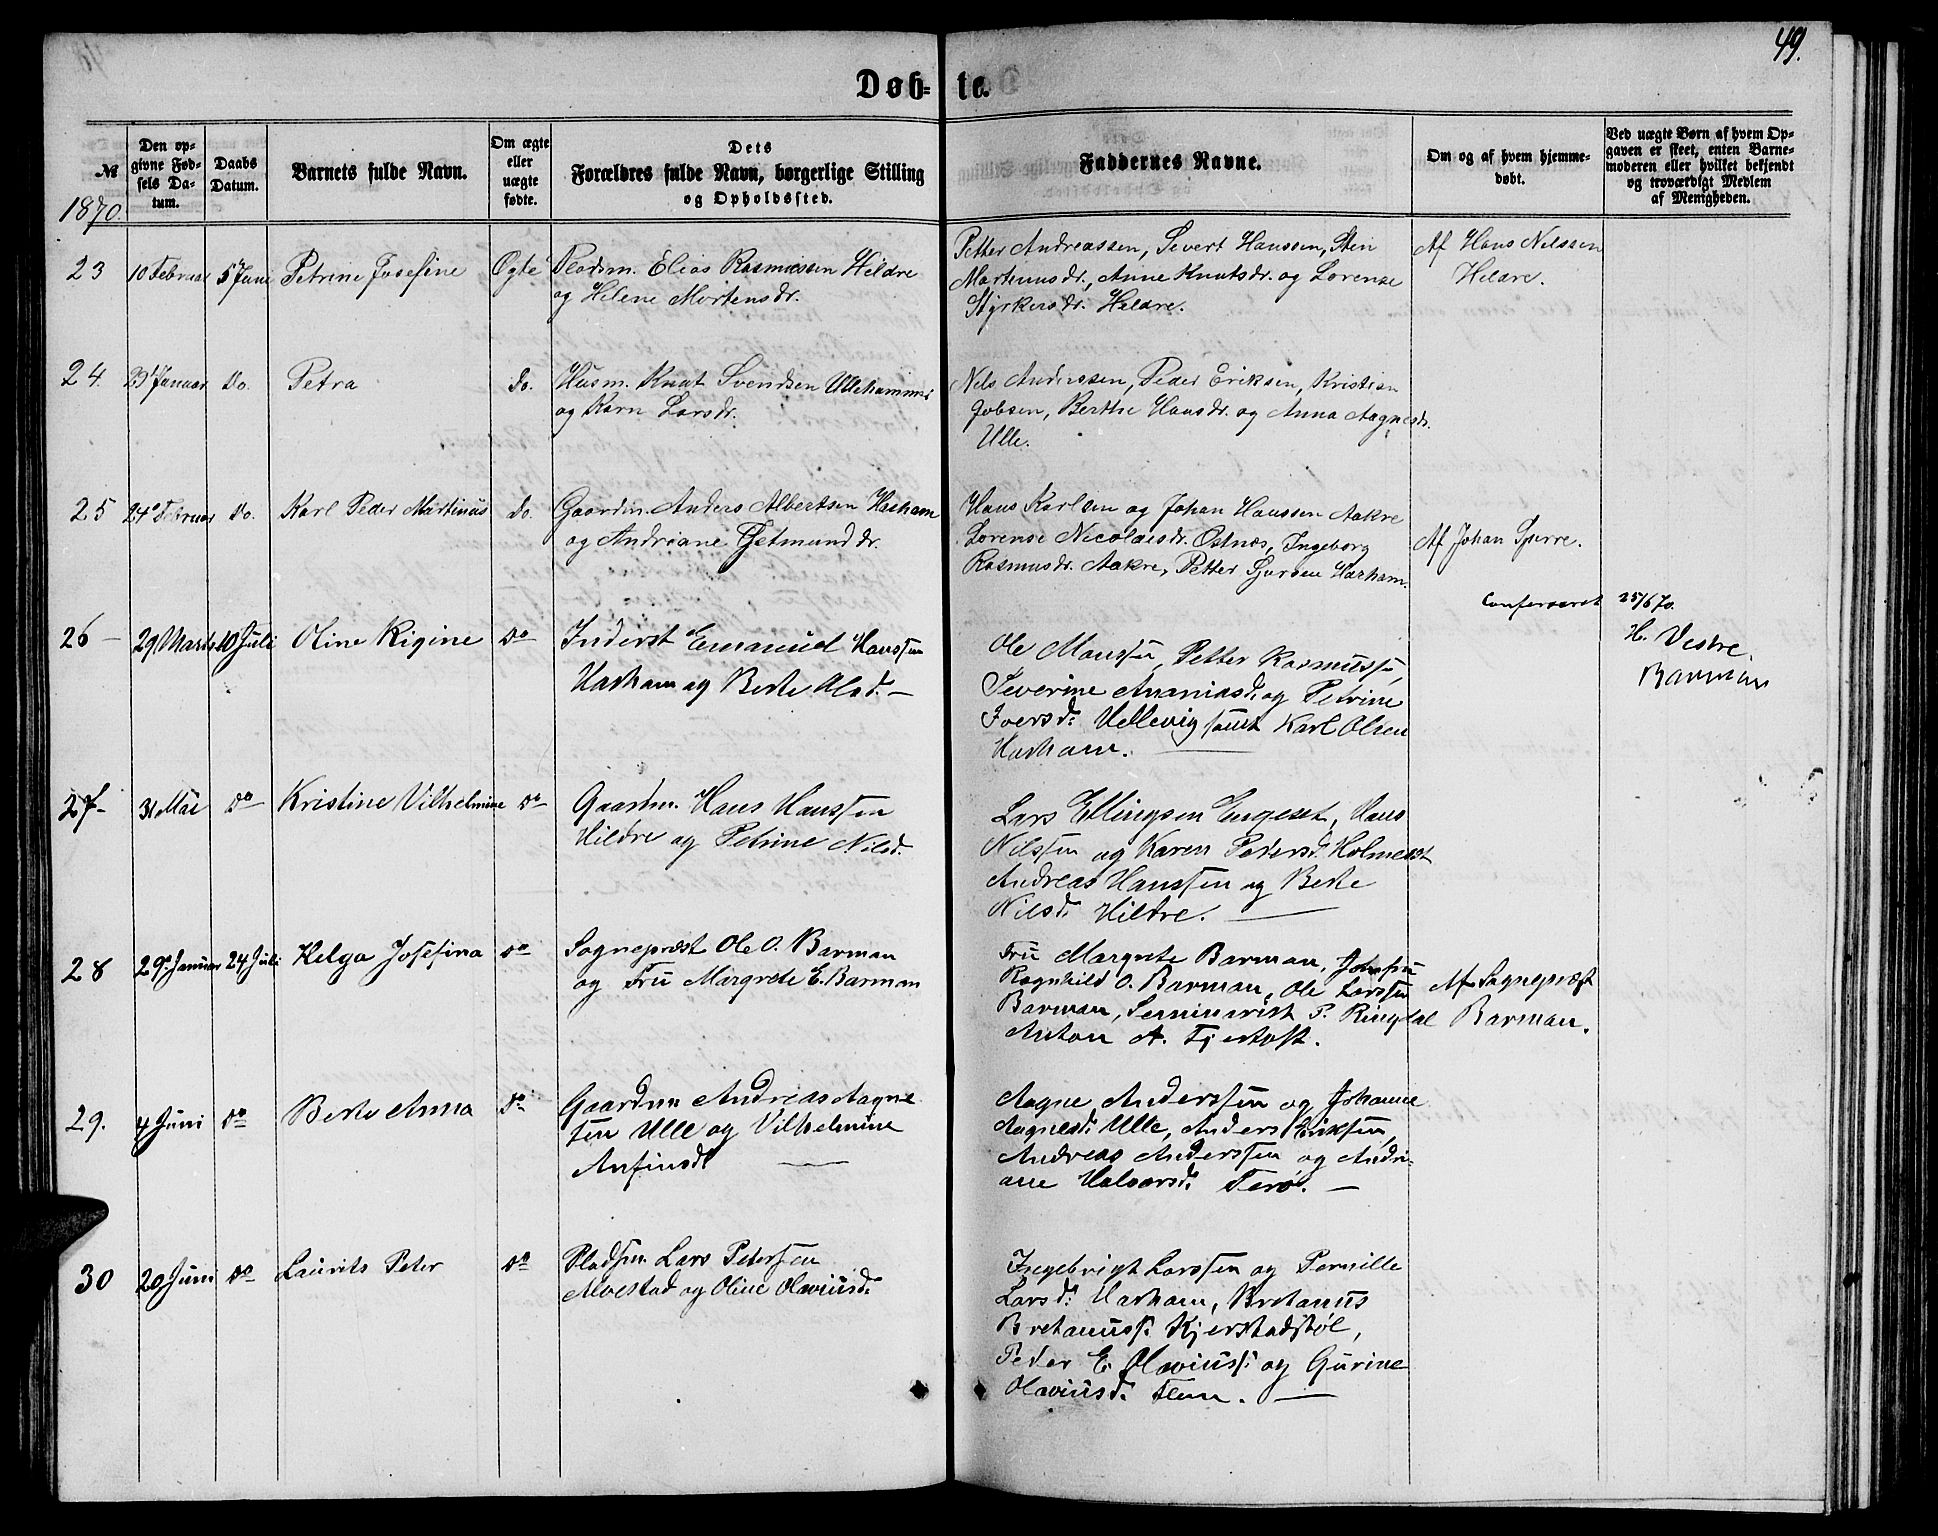 49.
Døb-
te.
№
Den op-
givne Fød-
sels Da-
tum.
Daabs
Datum.
Barnets fulde Navn.
Om ægte
eller
uægte
fødte.
Dets
Forældres fulde Navn, borgerlige Stilling
og Opholdssted.
Faddernes Navne.
Om og af hvem hjemme-
døbt.
Ved uægte Børn af hvem Op-
gaven er skeet, enten Barne-
moderen eller hvilket bekjendt
og troværdigt Medlem
af Menigheden.
1870
23
10 Februar
5 Juni
Petrine Josefine
Ægte
Pladsm. Elias Rasmussen Hildre
og Helene Mortensdr.
Petter Andreassen, Severt Hanssen, Sten
Martinusdr., Anne Knutsdr. og Lorense
Styrkersdr. Hildre.
Af Hans Nilssen
Hildre.
24.
23 Januar
Do.
Petra
do.
Husm. Knut Svendsen Ullehammer
og Karn Larsdr.
Nils Anderssen, Peder Eriksen, Kristian
Jobsen, Berthe Hansdr. og Anna Aagnesdr.
Ulle.
25
24de Februar
Do.
Karl Peder Martinus
do.
Gaardm. Anders Albertsen Harham
og Andreane Getmunddr.
Hans Karlsen og Johan Hanssen Aakre
Lorense Nicolaisdr. Ostnæs, Ingeborg
Rasmusdr. Aakre, Petter Sjursen Harham.
Af Johan Sperre.
Confereret 25/6 70.
H. Vestre.
Barman
26 -
29 Marts
10 Juli
Oline Rigine
do
Inderst Emanuel Hanssen
Harham og Berte Olsd. -
Ole Monssen, Petter Rasmussen,
Severine Ananiasd. og Petrine
Iversd. Hellevig samt Karl Olsen
Harham.
27 -
31 Mai
do
Kristine Vilhelmine
do
Gaardm. Hans Hanssen
Hildre og Petrine Nilsd.
Lars Ellingsen Engeset, Hans
Nilssen og Karen Pedersd. Holmeset
Andreas Hanssen og Berte
Nilsd. Hildre.
28
29 Januar
24 Juli
Helga Josefina
do
Sognepræst Ole O. Barman
og Fru Margrete E. Barman
Fru Margrete Barman, Jomfru
Ragnhild O. Barman, Ole Larssen
Barman, Seminarist P. Ringdal
Anton A. Fjertoft.
Af Sognepræst
Barman.
29.
4 Juni
do
Berte Anna
do
Gaardm Andreas Aagne
sen Ulle og Vilhelmine
Anfinsd.
Aagne Anderssen og Johanne
Aagnesd. Ulle, Anders Eriksen,
Andreas Anderssen og Andri-
ane Halvorsd. Terø. -
30
20 Juni
do
Laurits Peter
do
Pladsm. Lars Peterssen
Alvestad og Oline Olaviusd.
Ingebrigt Larssen og Pernille
Larsd. Harham, Bretanus
Bretanuss. Kjerstadstøl,
Peder E. Olaviuss. og Gurine
Olaviusd. Flem.